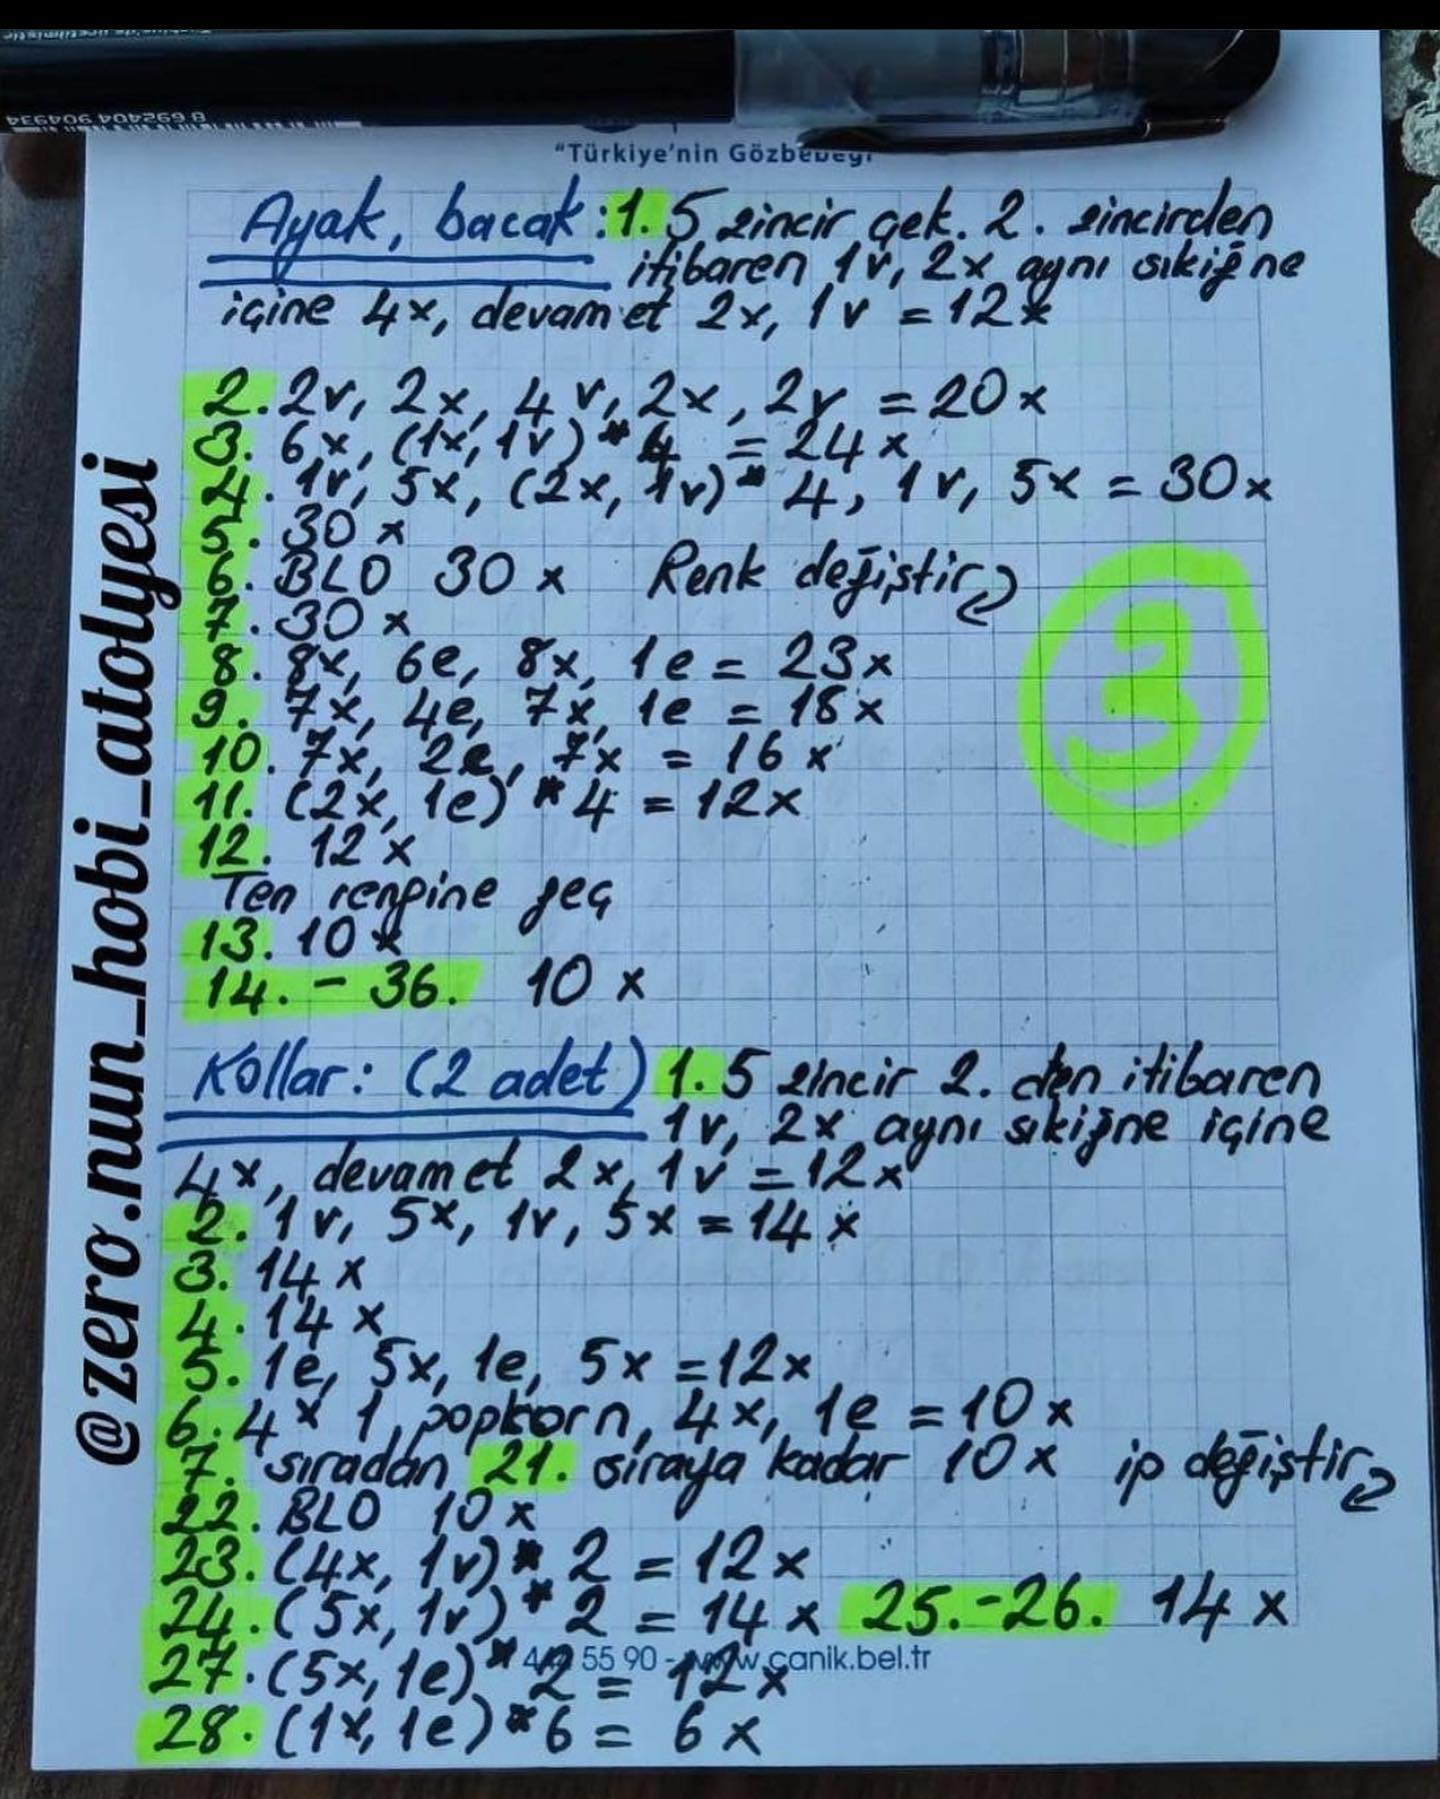 8 692404 904934
"Türkiye'nin Gözbebeği
Ayak, bacak: 1. 5 zincir çek. 2. zincirden
itibaren 1v, 2x aynı sıkiğne
içine 4x, devam et 2x, 1v = 12x
2. 2v, 2x, 4v, 2x, 2v = 20x
3. 6x, (1x, 1v) * 4 = 24x
4. 1v, 5x, (2x, 1v) * 4, 1v, 5x = 30x
5. 30x
6. BLO 30x Renk değiştir
7. 30x
8. 8x, 6e, 8x, 1e = 23x
9. 7x, 4e, 7x, 1e = 18x
10. 7x, 2e, 7x = 16x
11. (2x, 1e) * 4 = 12x
12. 12x
Ten rengine geç
13. 10x
14. - 36. 10x
3
Kollar: (2 adet) 1. 5 zincir 2. den itibaren
1v, 2x aynı sıkiğne içine
4x, devam et 2x, 1v = 12x
2. 1v, 5x, 1v, 5x = 14x
3. 14x
4. 14x
5. 1e, 5x, 1e, 5x = 12x
6. 4x 1 popkorn, 4x, 1e = 10x
7. sıradan 21. sıraya kadar 10x ip değiştir
22. BLO 10x
23. (4x, 1v) * 2 = 12x
24. (5x, 1v) * 2 = 14x 25.-26. 14x
55 90 - www.canik.bel.tr
27. (5x, 1e) * 2 = 12x
28. (1x, 1e) * 6 = 6x
@zero.nun_hobi_atolyesi